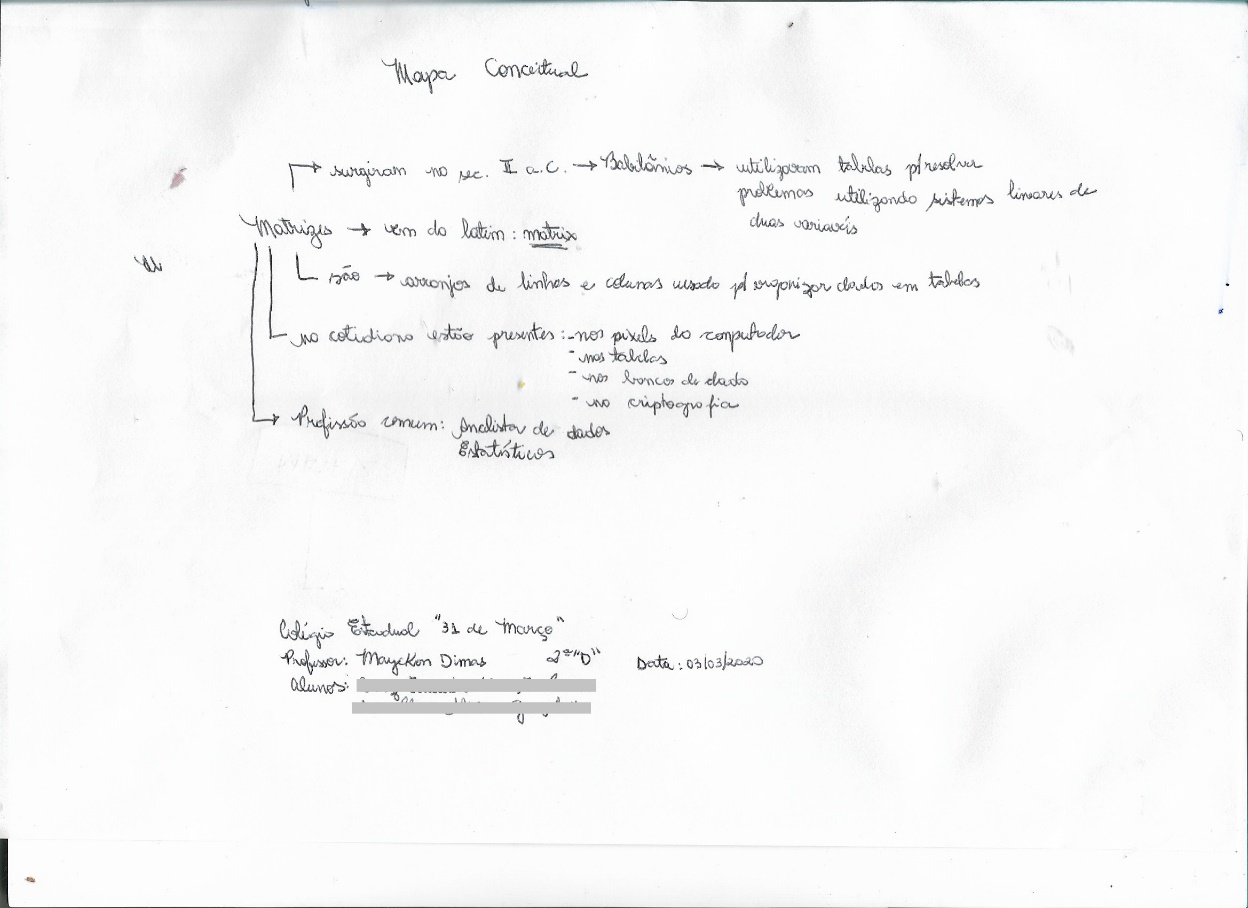 Mapa Conceitual
surgiram no sec. II a.C. → Babilônios → utilizavam tabelas p/ resolver
problemas utilizando sistemas lineares de
duas variavéis
Matrizes → vem do latim: matrix
são → arranjos de linhas e colunas usado p/ organizar dados em tabelas
no cotidiano estão presentes: - nos pixels do computador
- nas tabelas
- nos bancos de dado
- no criptografia
Profissão comum: Analista de dados
Estatísticos
Colégio Estadual "31 de Março"
Professor: Mayckon Dimas 2ª "D" Data: 03/03/2020
Alunos: